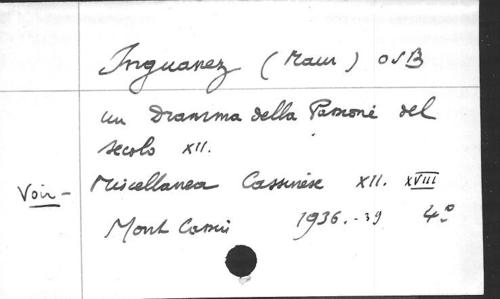 Inguanez (Maur) OSB
un Dramma della Passione del
secolo XII.
Voir - Miscellanea Cassinese XII. XVIII
Mont Cassin 1936.-39 4.°